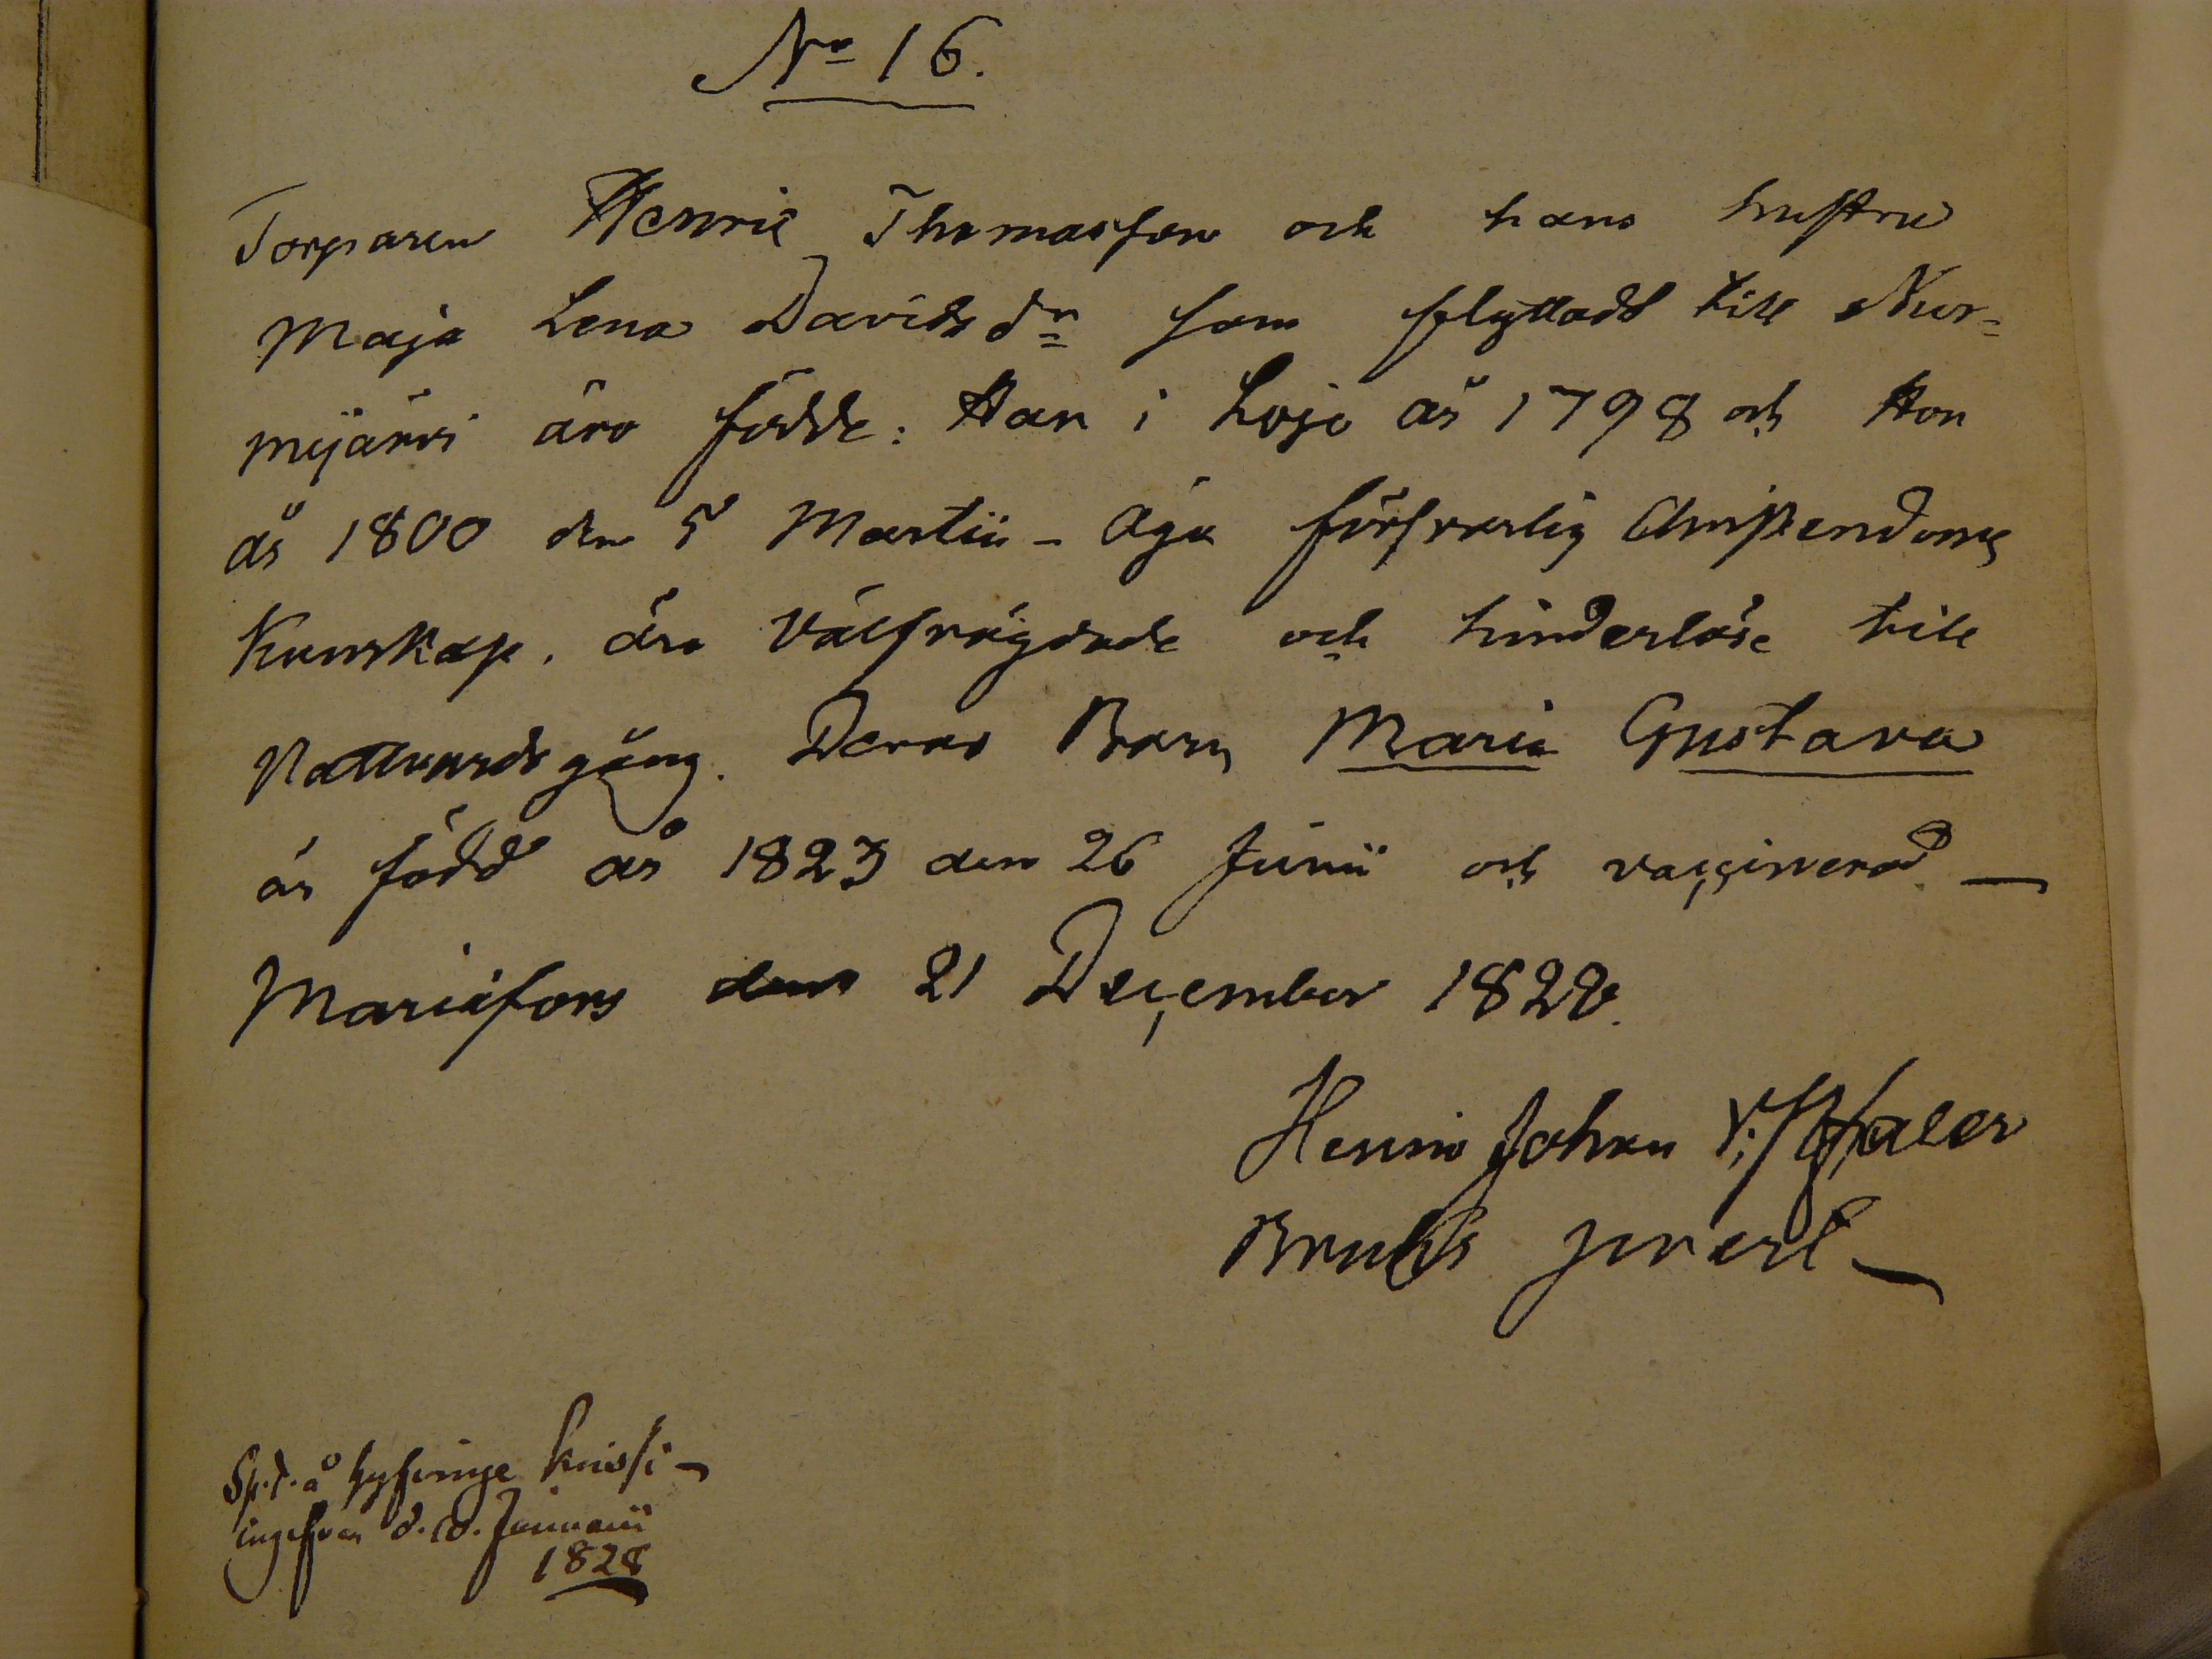 No 16.
Torparen Henric Thomasson och hans hustru
Maja Lena Davidsdr som flyttadt till Nur=
mijärvi äro födde: Han i Lojo år 1798 och Hon
år 1800 den 5 Martii - äga försvarlig Christendoms
Kunskap, äro välfrägdade och hinderlöse till
Nattvardsgång. Deras Barn Maria Gustava
är född år 1823 den 26 Junii och vaccinerad. —
Mariæfors den 21 December 1828.
Henric Johan
Bruks
å Hyfvinge
d. Januarii
1828